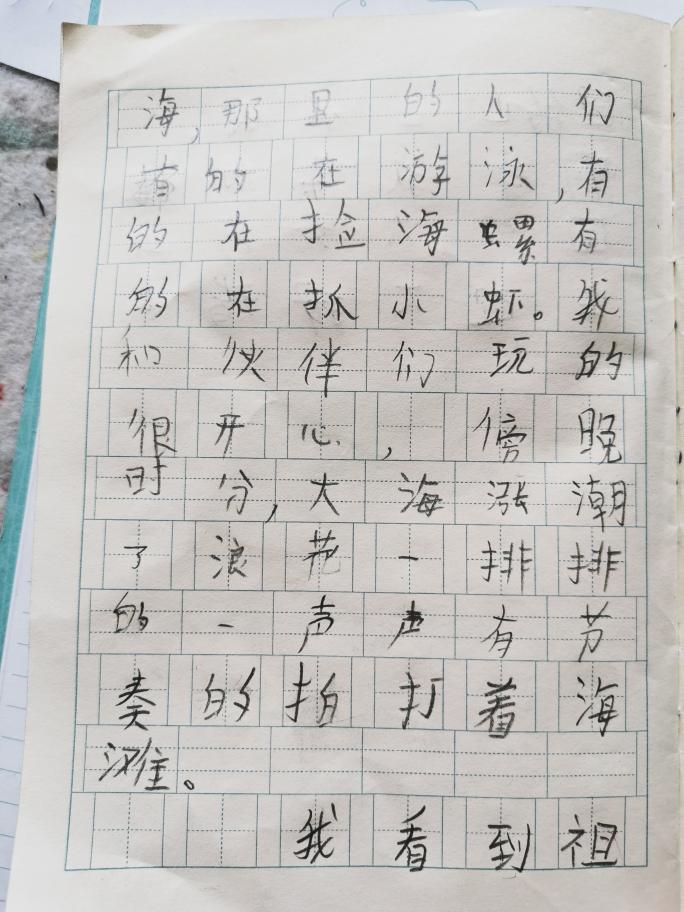 海,那里的人们
有的在游泳,有
的在捡海螺有
的在抓小虾。我
和伙伴们玩的
很开心,傍晚
时分,大海涨潮
了浪花一排排
的一声声有节
奏的拍打着海
滩。
我看到祖